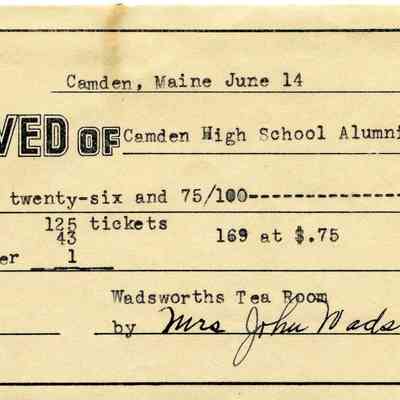 Camden, Maine June 14
VED OF Camden High School Alumni
twenty-six and 75/100-------------
125 tickets
43 169 at $.75
er 1
Wadsworths Tea Room
by Mrs John Wads